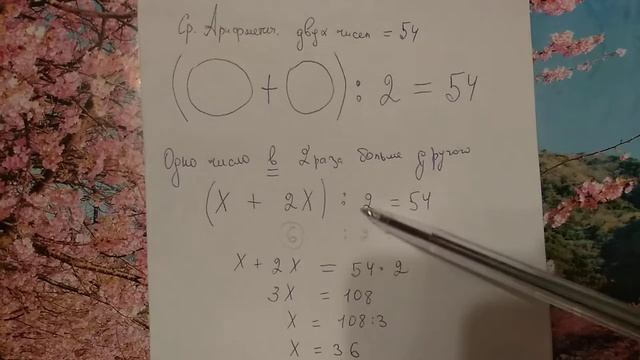 Ср. Арифметич. двух чисел = 54
(○ + ○) : 2 = 54
Одно число в 2 раза больше другого
(X + 2X) : 2 = 54
6 :
X + 2X = 54 · 2
3X = 108
X = 108 : 3
X = 36